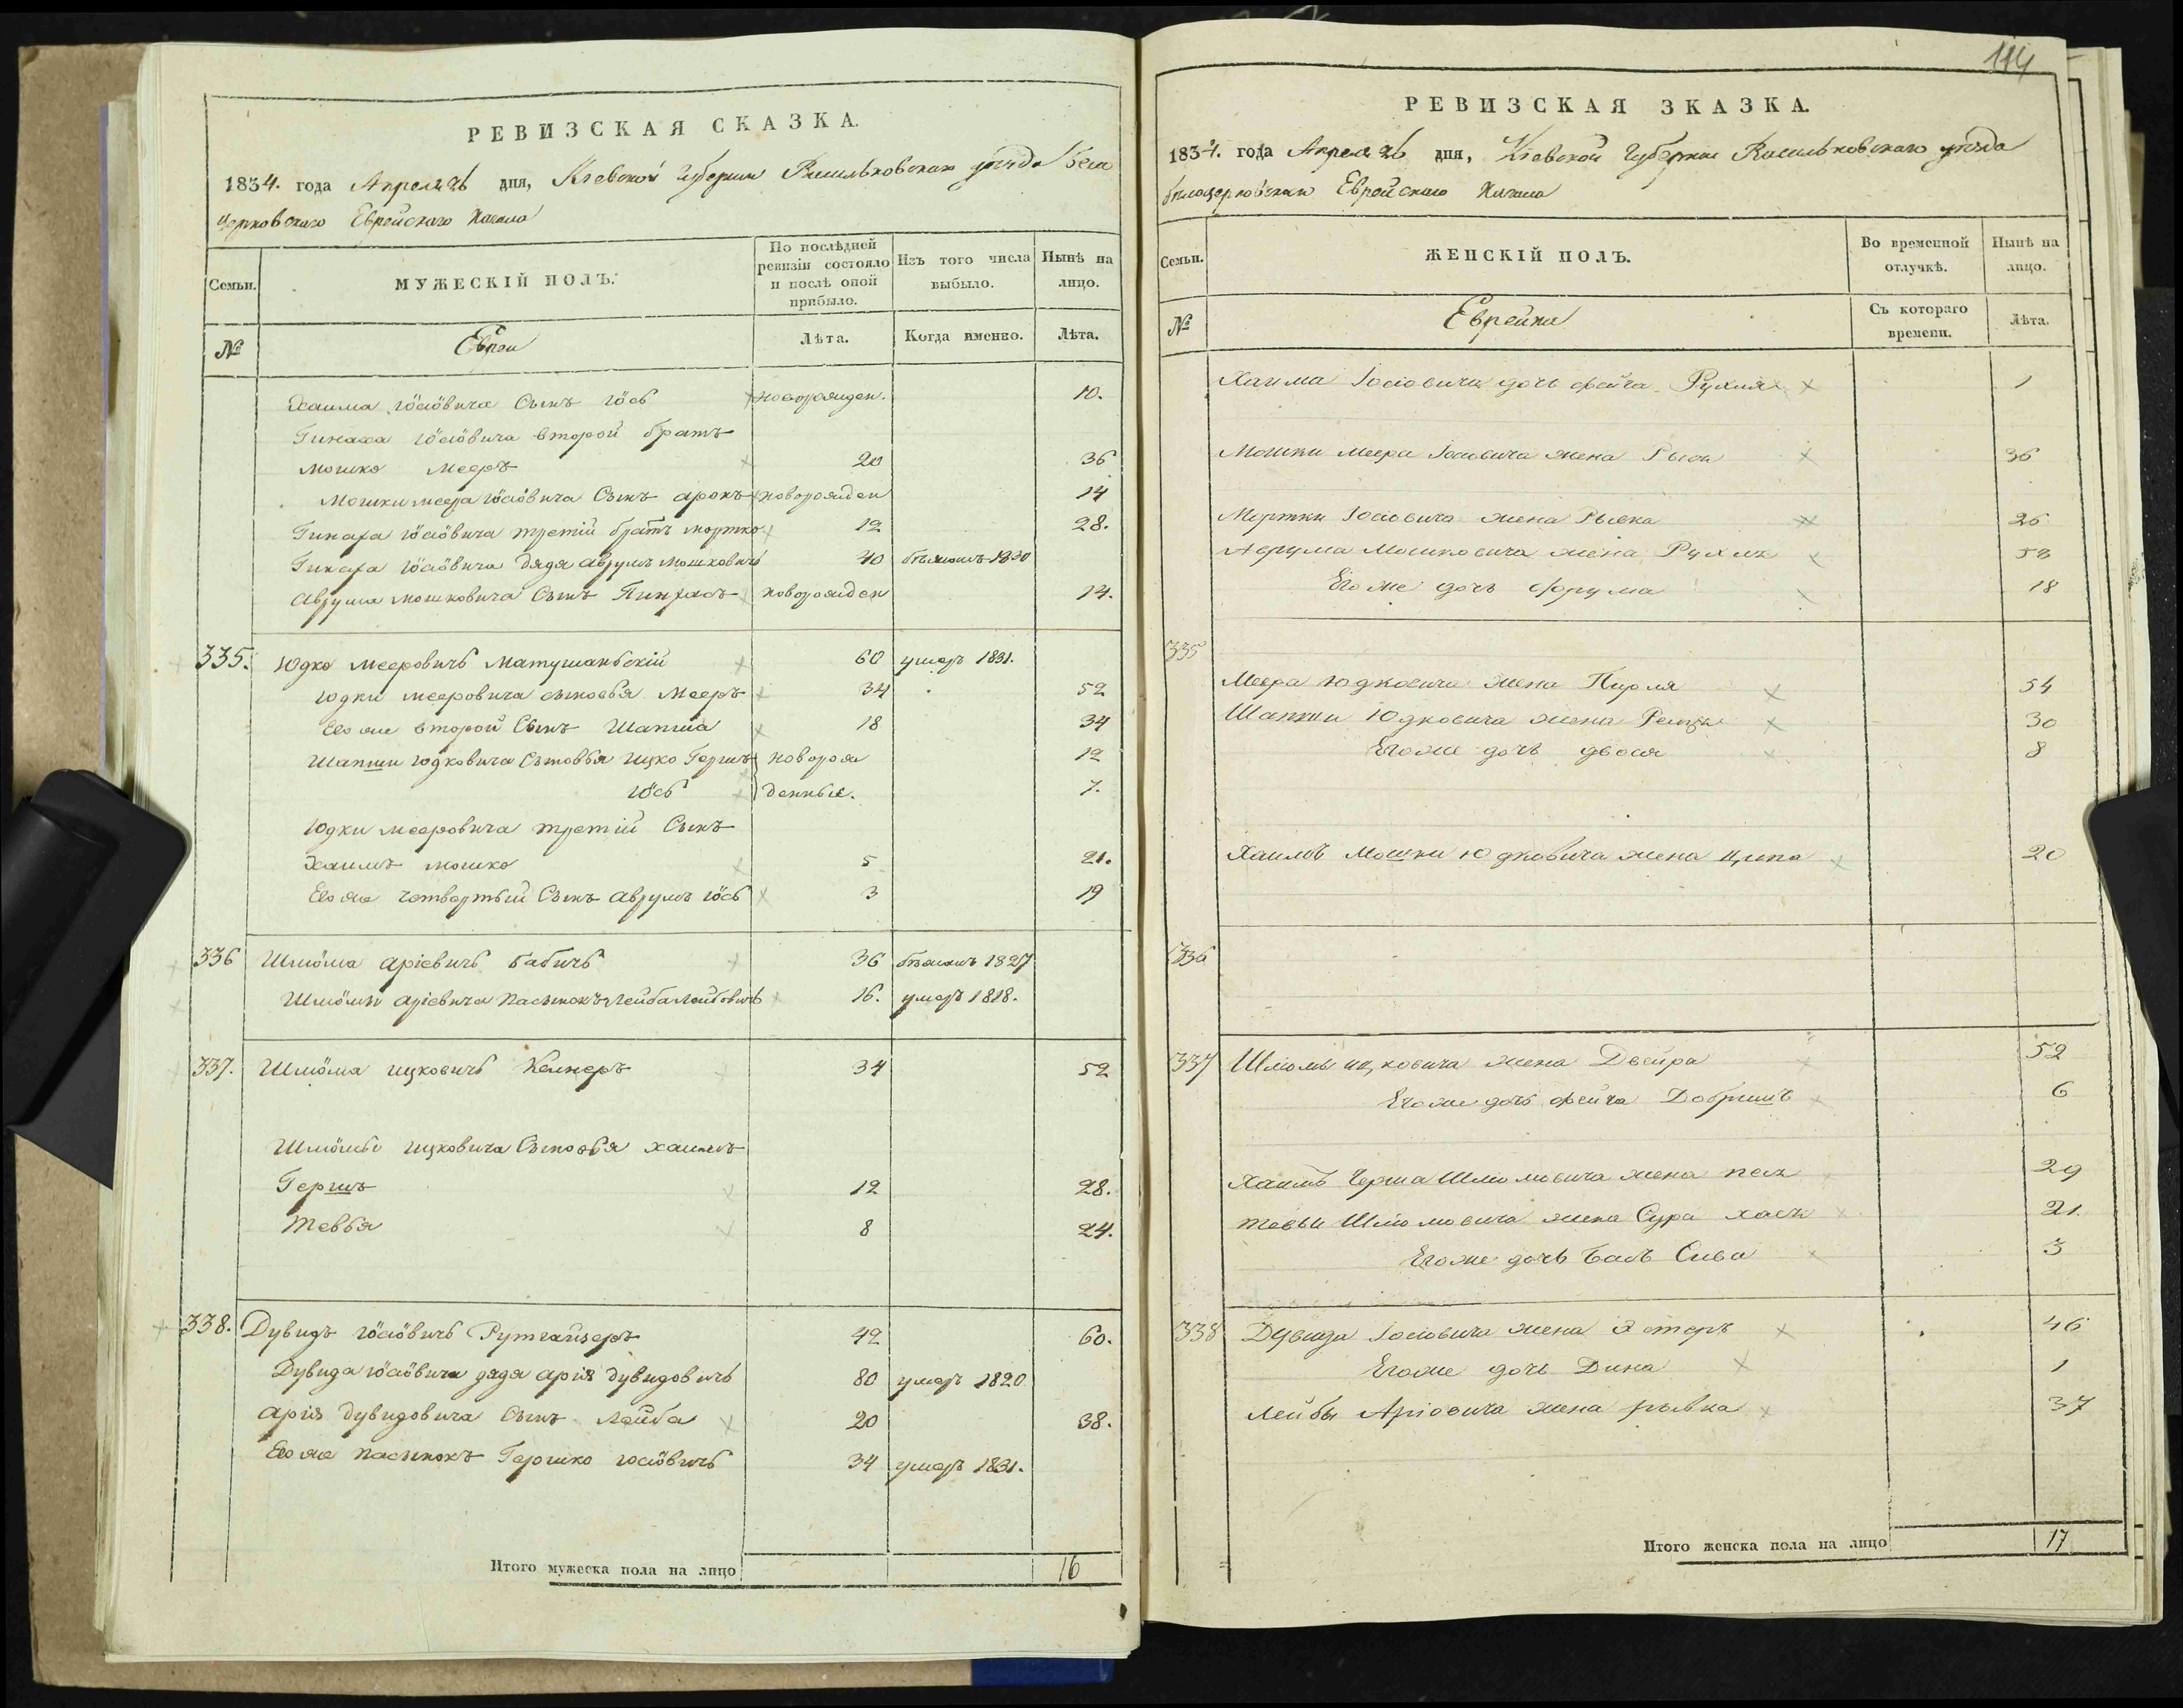 РЕВИЗСКАЯ СКАЗКА.
1834. года Апреля 26 дня, Кіевской Губерніи Васильковскаго уѣзда Бело
церковскаго Еврейскаго Кагала
Семьи.
МУЖЕСКІЙ ПОЛЪ.
По послѣдней ревизіи состояло и послѣ оной прибыло.
Изъ того числа выбыло.
Нынѣ на лицо.
№
Евреи
Лѣта.
Когда именно.
Лѣта.
Хаима Іосіовича Сынъ Іось новорожден. 10.
Пинхаса Іосіовича второй братъ
Мошко Мееръ 20 36
Мошки меера Іосіовича Сынъ аронъ новорожден 14
Пинхаса Іосіовича третій братъ мортко 12 28.
Пинхаса Іосіовича дядя аврумъ мошковичъ 40 бѣжалъ 1830
Аврума мошковича Сынъ Пинхасъ новорожден 14.
335. Юдко мееровичъ Матушанскій 60 умеръ 1831.
Юдки мееровича сыновья Мееръ 34 52
Его же второй Сынъ Шапша 18 34
Шапши юдковича Сыновья ицко Гершъ новорож 12
Іось денные. 7.
Юдки мееровича третій Сынъ
Хаимъ мошко 5 21.
Его же четвертый Сынъ аврумъ Іось 3 19
336 Шлiома аріевичъ бабичъ 36 бѣжалъ 1827
Шлiомы аріевича пасынокъ Лейба Лейбовичъ 16. умеръ 1818.
337. Шлiома ицковичъ Келнеръ 34 52
Шлiомы ицковича Сыновья хаимъ
Гершъ 12 28.
Тевья 8 24.
338. Дувидъ Іосіовичъ Рутгайзеръ 42 60.
Дувида Іосіовича дядя арія дувидовичъ 80 умеръ 1820
арія дувидовича Сынъ Лейба 20 38.
Его же пасынокъ Гершко Іосіовичъ 34 умеръ 1831.
Итого мужеска пола на лицо 16
114
РЕВИЗСКАЯ ЗКАЗКА.
1834. года Апреля 26 дня, Кіевской Губерніи Васильковскаго уѣзда
белоцерковскаго Еврейскаго Кагала
Семьи.
ЖЕНСКІЙ ПОЛЪ.
Во временной отлучкѣ.
Нынѣ на лицо.
№
Еврейки
Съ котораго времени.
Лѣта.
Хаима Іосіовича дочь фейга Рухля 1
Мошки меера Іосіовича жена Рыся 36
Мортки Іосіовича жена Рывка 26
Аврума Мошковича жена Рухля 53
Его же дочь фрума 18
335
Меера Юдковича жена Пирля 54
Шапши Юдковича жена 30
Его же дочь двося 8
Хаимъ Мошки юдковича жена ципа 20
336
337 Шлiомы ицковича жена Двейра 52
Его же дочь фейга Добришъ 6
Хаимъ Герша Шлiомовича жена песя 29
тевьи Шлiомовича жена Сура хася 21.
Его же дочь Сива 3
338 Дувида Іосіовича жена Эстеръ 46
Его же дочь Дина 1
Лейбы Аріовича жена рывка 37
Итого женска пола на лицо 17